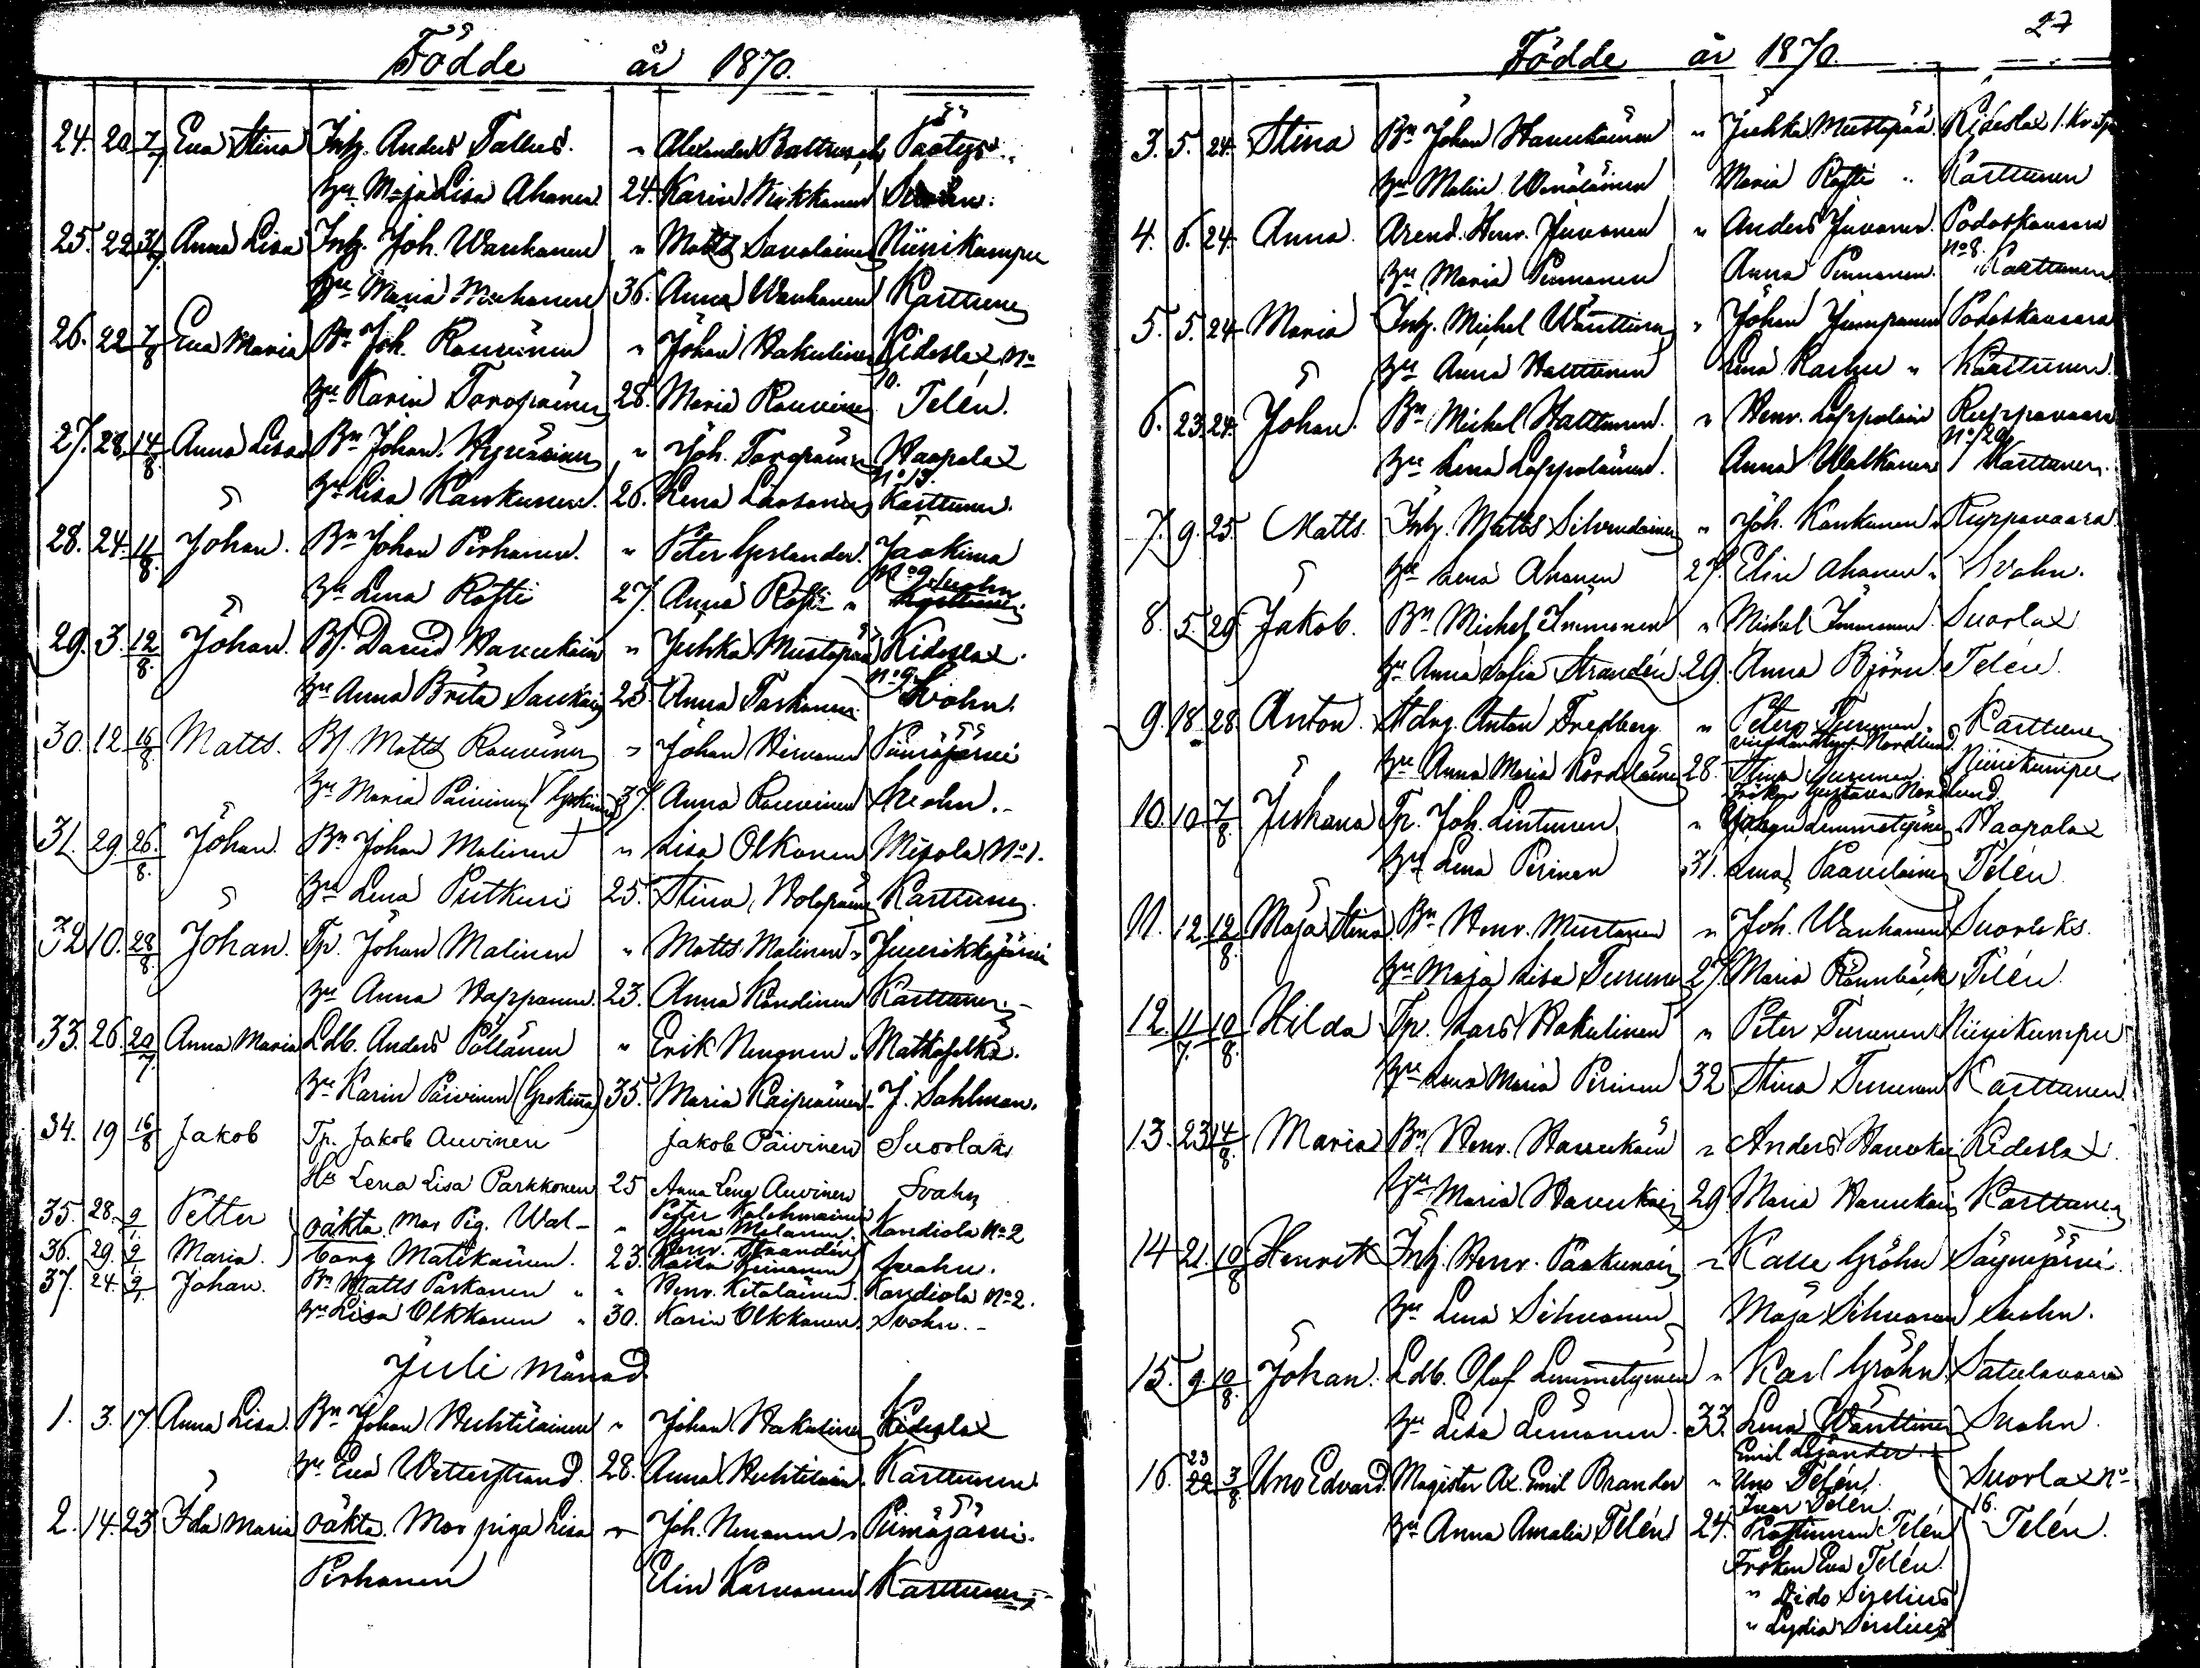 Födde år 1870.
24. 20 7/7 Eva Stina Inh. Anders Tallus. " Alexander Paatys
Hu Maja Lisa Ahonen 24. Karin Kukkonen Svahn.
25. 22 31/7 Anna Lisa Inh. Joh. Wanhanen " Matts Savolainen Niinikumpu
Hu Maria 36. Anna Wanhanen Karttunen
26. 22 7/8 Eva Maria Bn Joh. Rouvinen " Johan Hakulinen Kideslax No
Hu Karin Toropainen 28. Maria Rouvinen 10. Telén.
27. 28 14/8 Anna Lisa Bn Johan " Joh. Toropainen Haapalax
No 13.
Hu Lisa Kankunen. 26. Lena Karttunen.
28. 24. 11/8 Johan. Bn Johan Pirhonen. " Peter Gerlander. Jaakima
No 9
Hu Lena Rosti 27. Anna Rosti " Svahn
29. 3. 12/8 Johan. Bs. David Haverkain " Juhka Mustapää Kideslax.
No 9.
Hu Anna Brita 23. Anna Taskanen Svahn.
30. 12 16/8 Matts. Bs. Matts Rouvinen " Johan Hirvonen Piimäjärvi
Hu Maria Päivinen 37. Anna Rouvinen Svahn. -
31. 29 26/8 Johan. Bn Johan Malinen " Lisa Olkonen Misola No 1.
Hu Lena Putkuri 25. Stina Holopainen Karttunen
32 10. 28/8 Johan. Tp. Johan Malinen " Matts Malinen " Juurikkajärvi
Hu Anna Happonen. 23. Anna Kondinen Karttunen. -
33. 26. 20/7 Anna Maria Ldb. Anders Pöllänen " Erik Nenonen " Matkaselkä.
Hu Karin Päivinen 35. Maria Kaipiainen J. Sahlman.
34. 19 16/8 Jakob Tp. Jakob Auvinen Jakob Päivinen Suorlaks
Hu Lena Lisa Parkkonen 25 Anna Lena Auvinen Svahn
35. 28. 9/1 Petter oäkta. Mor Pig. Wal- " Peter Kolehmainen
Stina Malanen. Kondiola No 2
36. 29. 9/1 Maria. borg Matikainen. 23. Henr. Strandén
Kaisa Svahn.
37. 24. 9/1 Johan. Bn Matts Paskonen " " Henr. Kitalainen. Kondiola No 2.
Hu Lisa Olkkonen " 30. Karin Olkkonen. Svahn. -
Juli Månad
1. 3. 17. Anna Lisa. Bn Johan Huhtilainen " Johan Hakulinen Kideslax
Hu Eva Wetterstrand. 28. Anna Huhtilain. Karttunen.
2. 14. 23 Ida Maria oäkta. Mor piga Lisa " Joh. Nenonen " Piimäjärvi.
Pirhonen Elin Karvonen Karttunen
27
Födde år 1870.
3. 5. 24. Stina Bn Johan Haverkainen " Juhka Mustapää Kideslax
Hu Malin Wenäläinen Maria Rosti " Karttunen
4. 6. 24. Anna. Arend. Henr. Juvonen " Anders Juvonen. Potoskavaara
No 8.
Hu Maria Pennanen Anna Pennanen. Karttunen
5. 5. 24. Maria Inh. Michel Wänttinen " Johan Jumpanen Potoskavaara
Hu Anna Halttunen Lena Karhu " Karttunen.
6. 23 24. Johan. Bn Michel Halttunen. " Henr. Loppolain Ruppovaara
No 20
Hu Lena Loppolainen. Anna Walkonen Karttunen.
7. 9. 25. Matts. Inh. Matts Silvendoinen " Joh. Kankunen " Ruppovaara
Hu Lena Ahonen 27. Elin Ahonen " Svahn.
8. 5. 29 Jakob. Bn Michel Immonen " Michel Immonen. Suorlax
Hu Anna Sofia Strandén 29. Anna Björn Telén.
9. 18 28. Anton. Anton Fredberg. " Peter Turunen. Karttunen
Nordlund.
Hu Anna Maria 28. Stina Turunen. Niinikumpu
Fröken Gustava Nordlund.
10. 10 7/8 Juhana Tp. Joh. Lintunen. " Johan Lemmetyinen Haapalax
Hu Lena Pirinen 31. Lena Paavilainen Telén.
11. 12. 12/8 Maja Stina. Bn Henr. Mustonen " Joh. Wanhanen Suorlaks.
Hu Maja Lisa Turunen 27. Maria Rönnbäck Telén.
12. 11/7 10/8 Hilda Tp. Lars Hakulinen " Peter Turunen Niinikumpu
Hu Lena Maria Pirinen 32 Stina Turunen Karttunen
13. 23 14/8 Maria Bn Henr. Haverkain " Anders Haverkain Kideslax.
Hu Maria Haverkain 29 Maria Haverkain Karttunen
14 21. 10/8 Henrik Inh. Henr. Paakunain " Kalle Gröhn Säynejärvi.
Hu Lena Sihvonen Maja Sihvonen Svahn.
15. 9. 10/8 Johan. Ldb. Olof Lemmetyinen " Karl Gröhn. Satulavaara
Hu Lisa Limonen. 33. Lena Wänttinen Svahn.
Emil
16. 23 22 3/8 Uno Edvard. Magister Ax. Emil Brander " Uno Telén. Suorlax No
Ivar Telén. 16.
Hu Anna Amalia Telén 24. Prostinnan Telén Telén.
Fröken Eva Telén.
" Dido Sirelius
" Lydia Sirelius